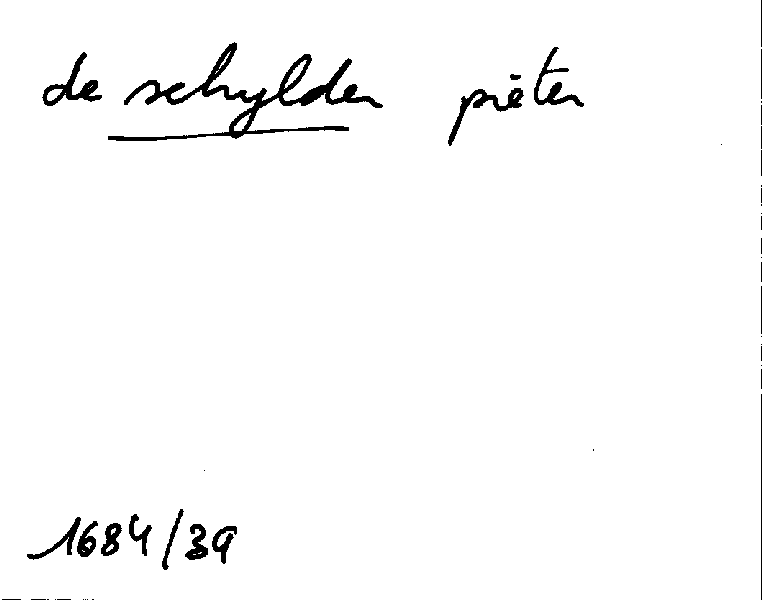 de schylder pieter
1684/39